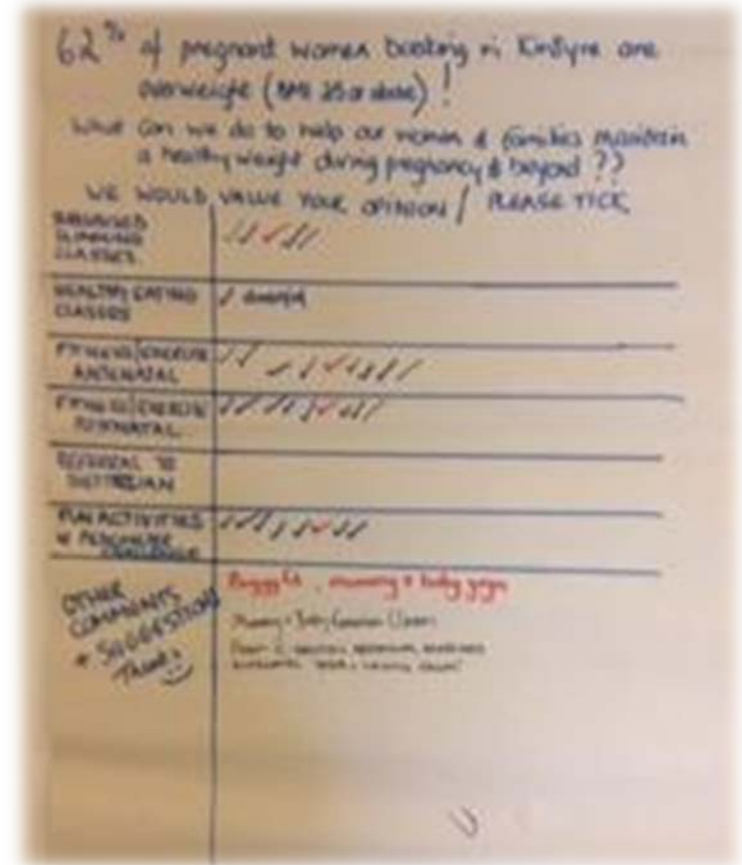 62% of pregnant women booking in Kintyre are
overweight (BMI 25 or above) !
What can we do to help our women & families maintain
a healthy weight during pregnancy & beyond ??
WE WOULD VALUE YOUR OPINION / PLEASE TICK
SLIMMING
CLASSES
HEALTHY EATING
CLASSES
FITNESS/EXERCISE
ANTENATAL
FITNESS/EXERCISE
POSTNATAL
REFERRAL TO
DIETITIAN
FUN ACTIVITIES
PEDOMETER
OTHER
COMMENTS
+ SUGGESTIONS
Buggy fit, mummy + baby yoga
Mummy + Baby Classes